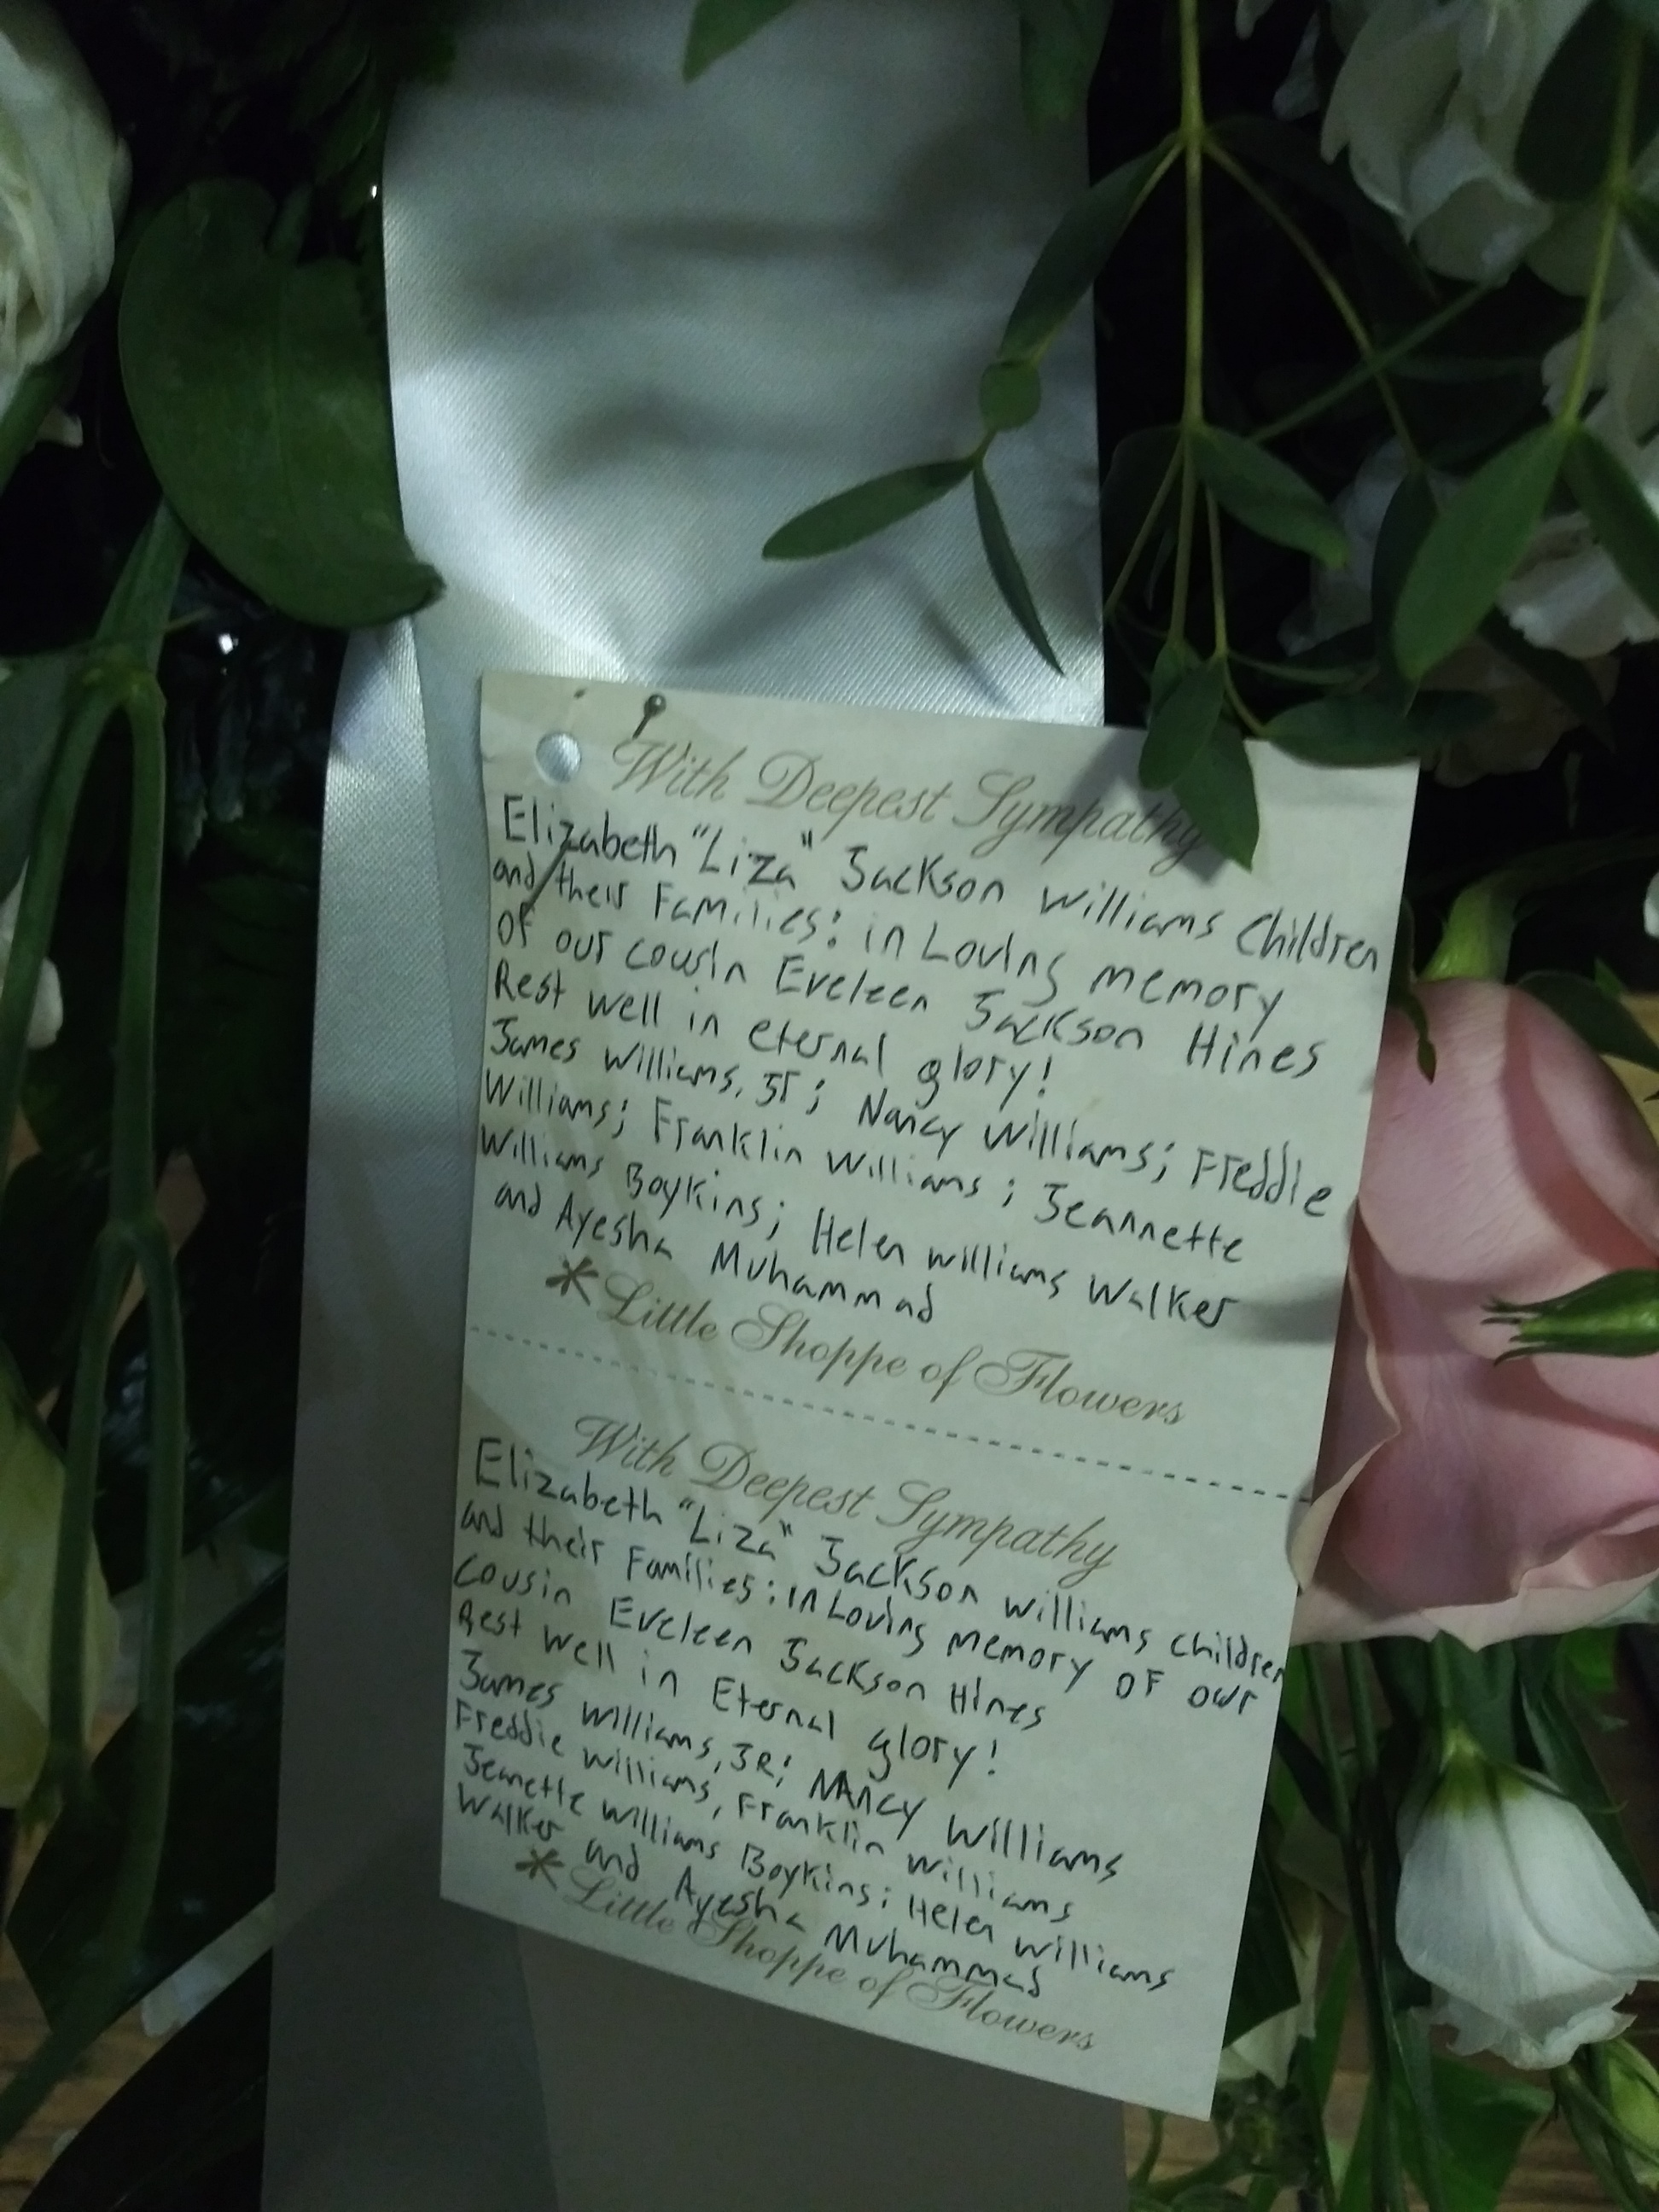 With Deepest Sympathy
Elizabeth "Liza" Jackson Williams Children
and their Families: in Loving memory
of our cousin Eveleen Jackson Hines
Rest well in eternal glory!
James Williams, Jr; Nancy Williams; Freddie
Williams; Franklin Williams; Jeannette
Williams Boykins; Helen Williams Walker
and Ayesha Muhammad
*Little Shoppe of Flowers
With Deepest Sympathy
Elizabeth "Liza" Jackson Williams Children
and their Families: in Loving memory of our
cousin Eveleen Jackson Hines
Rest well in Eternal glory!
James Williams, JR; NANCY Williams
Freddie Williams, Franklin Williams
Jeanette Williams Boykins; Helen Williams
Walker and Ayesha Muhammad
*Little Shoppe of Flowers